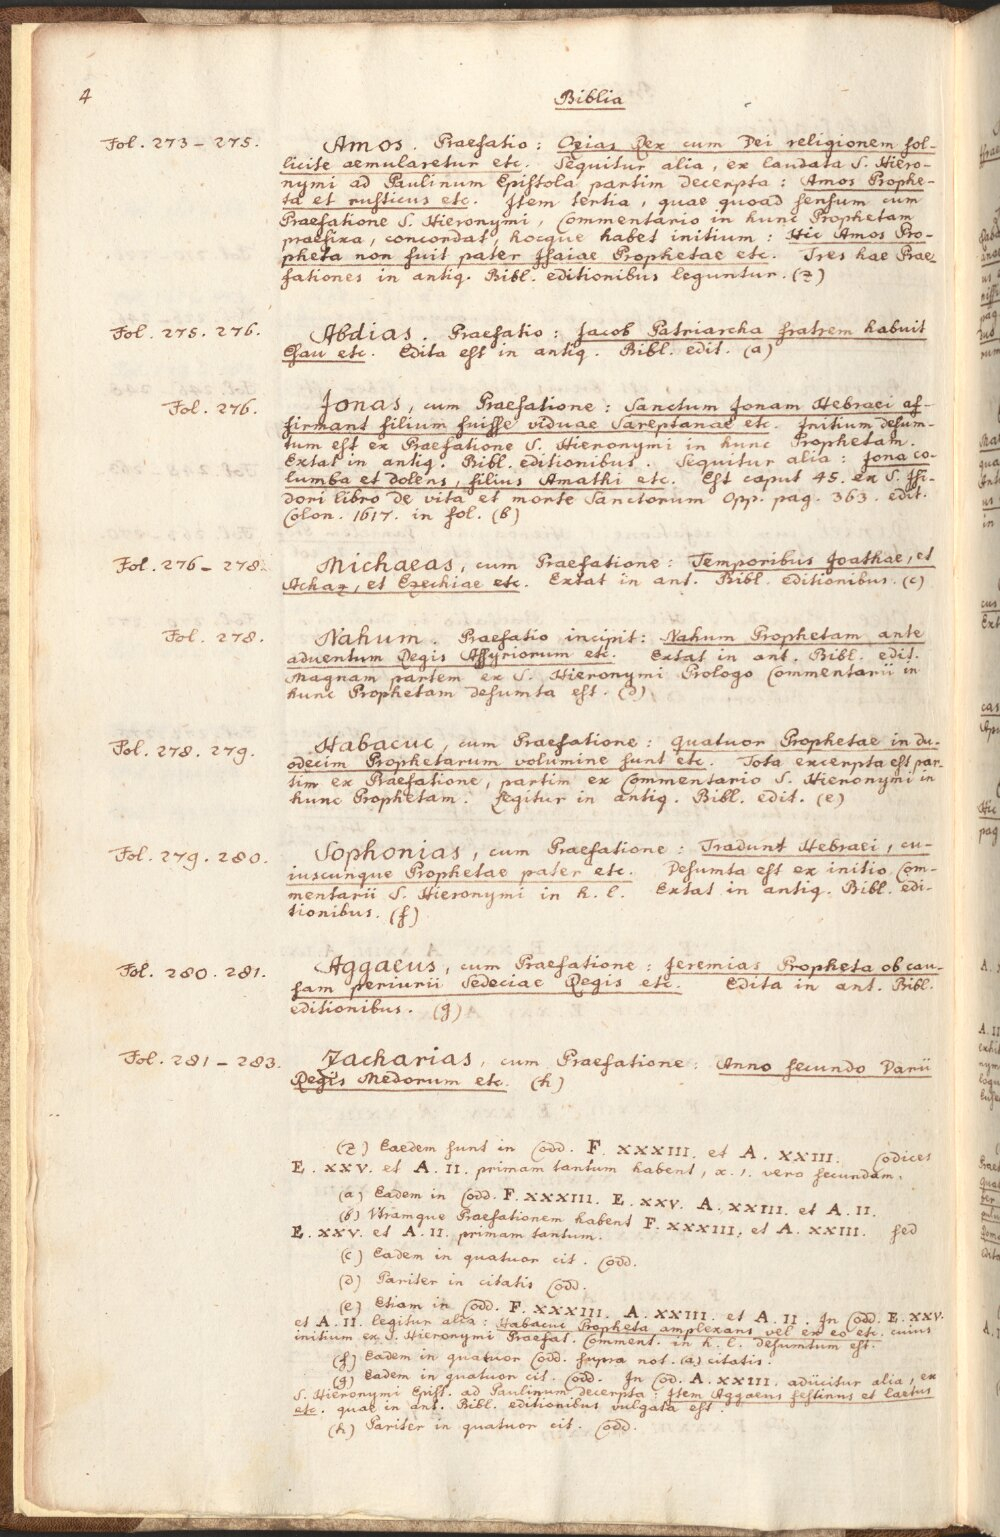 4
Biblia
Fol. 273 – 275.
Amos. Praefatio: Ozias Rex cum Dei religionem sol-
licite aemularetur etc. Sequitur alia, ex laudata S. Hiero-
nymi ad Paulinum Epistola partim decerpta: Amos Prophe-
ta et rusticus etc. Item tertia, quae quoad sensum cum
Praefatione S. Hieronymi, Commentario in hunc Prophetam
praefixa, concordat, hocque habet initium: Hic Amos Pro-
pheta non fuit pater Isaiae Prophetae etc. Tres hae Prae-
fationes in antiq. Bibl. editionibus leguntur. (z)
Fol. 275. 276.
Abdias. Praefatio: Jacob Patriarcha fratrem habuit
Esau etc. Edita est in antiq. Bibl. edit. (a)
Fol. 276.
Jonas, cum Praefatione: Sanctum Jonam Hebraei af-
firmant filium fuisse viduae Sareptanae etc. Initium desum-
tum est ex Praefatione S. Hieronymi in hunc Prophetam.
Extat in antiq. Bibl. editionibus. Sequitur alia: Jona co-
lumba et dolens, filius Amathi etc. Est caput 45. ex S. Isi-
dori libro de vita et morte Sanctorum Opp. pag. 363. edit.
Colon. 1617. in fol. (b)
Fol. 276 – 278.
Michaeas, cum Praefatione: Temporibus Joathae, et
Achaz, et Ezechiae etc. Extat in ant. Bibl. editionibus. (c)
Fol. 278.
Nahum. Praefatio incipit: Nahum Prophetam ante
adventum Regis Assyriorum etc. Extat in ant. Bibl. edit.
Magnam partem ex S. Hieronymi Prologo Commentarii in
hunc Prophetam desumta est. (d)
Fol. 278. 279.
Habacuc, cum Praefatione: Quatuor Prophetae in du-
odecim Prophetarum volumine sunt etc. Tota excerpta est par-
tim ex Praefatione, partim ex Commentario S. Hieronymi in
hunc Prophetam. Legitur in antiq. Bibl. edit. (e)
Fol. 279. 280.
Sophonias, cum Praefatione: Tradunt Hebraei, cu-
iuscunque Prophetae pater etc. Desumta est ex initio Com-
mentarii S. Hieronymi in h. l. Extat in antiq. Bibl. edi-
tionibus. (f)
Fol. 280. 281.
Aggaeus, cum Praefatione: Jeremias Propheta ob cau-
sam periurii Sedeciae Regis etc. Edita in ant. Bibl.
editionibus. (g)
Fol. 281 – 283.
Zacharias, cum Praefatione: Anno secundo Darii
Regis Medorum etc. (h)
(z) Eaedem sunt in Codd. F. XXXIII. et A. XXIII. Codices
E. XXV. et A. II. primam tantum habent, x. 1. vero secundam.
(a) Eadem in Codd. F. XXXIII. E. XXV. A. XXIII. et A. II.
(b) Utramque Praefationem habent F. XXXIII. et A. XXIII. sed
E. XXV. et A. II. primam tantum.
(c) Eadem in quatuor cit. Codd.
(d) Pariter in citatis Codd.
(e) Etiam in Codd. F. XXXIII. A. XXIII. et A. II. In Codd. E. XXV.
et A. II. legitur alia: Habacuc Propheta amplexans vel ex eo etc. cuius
initium ex S. Hieronymi Praefat. Comment. in h. l. desumtum est.
(f) Eadem in quatuor Codd. supra not. (a) citatis.
(g) Eadem in quatuor cit. Codd. In Cod. A. XXIII. adiicitur alia, ex
S. Hieronymi Epist. ad Paulinum decerpta: Item Aggaeus festinus et laetus
etc. quae in ant. Bibl. editionibus vulgata est.
(h) Pariter in quatuor cit. Codd.